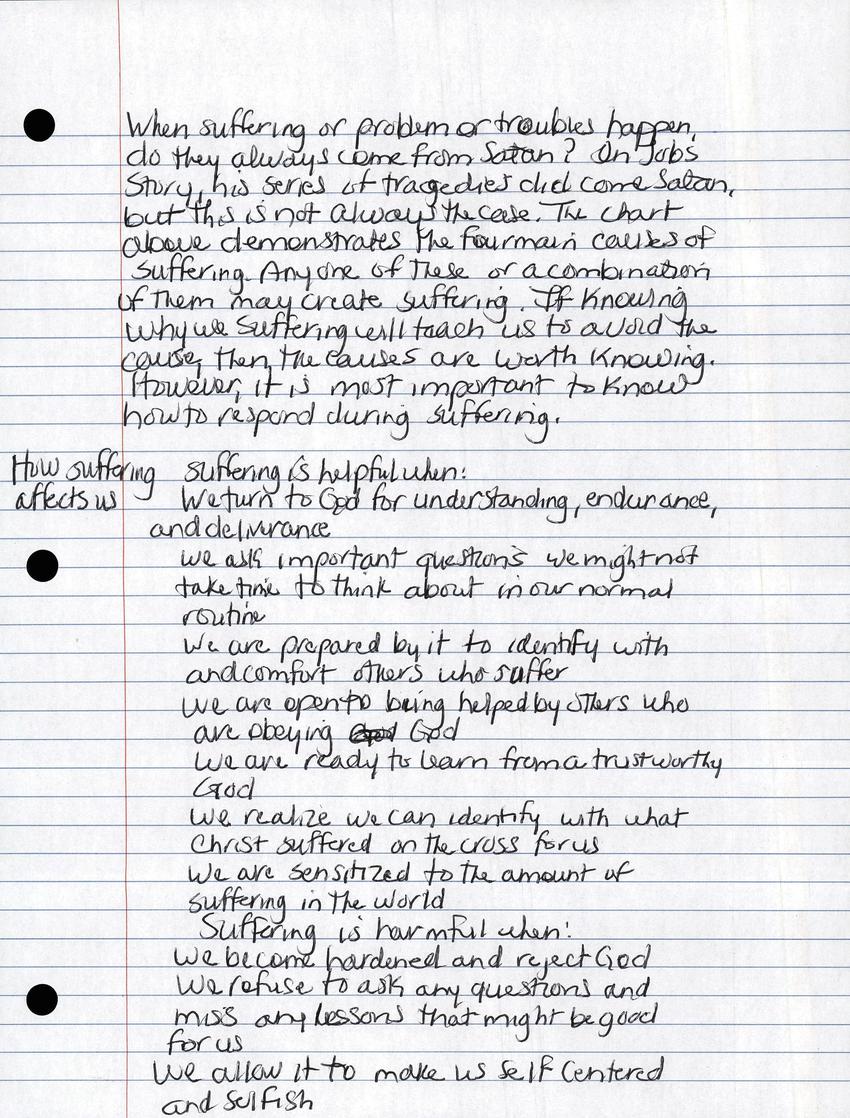 When suffering or problem or troubles happen,
do they always come from Satan? In Jobs
Story, his series of tragedies did come Satan,
but this is not always the case. The chart
above demonstrates the four main causes of
suffering. Any one of these or a combination
of them may create suffering. If Knowing
why we Suffering will teach us to avoid the
cause, then, the causes are worth Knowing.
However, it is most important to Know
how to respond during suffering.
How suffering
affects us
suffering is helpful when:
We turn to God for understanding, endurance,
and deliverance
we ask important questions we might not
take time to think about in our normal
routine
We are prepared by it to identify with
and comfort others who suffer
we are open to being helped by others who
are obeying God
We are ready to learn from a trustworthy
God
we realize we can identify with what
Christ suffered on the cross for us
we are sensitized to the amount of
suffering in the world
Suffering is harmful when:
we become hardened and reject God
We refuse to ask any questions and
miss any lessons that might be good
for us
we allow it to make us self Centered
and selfish